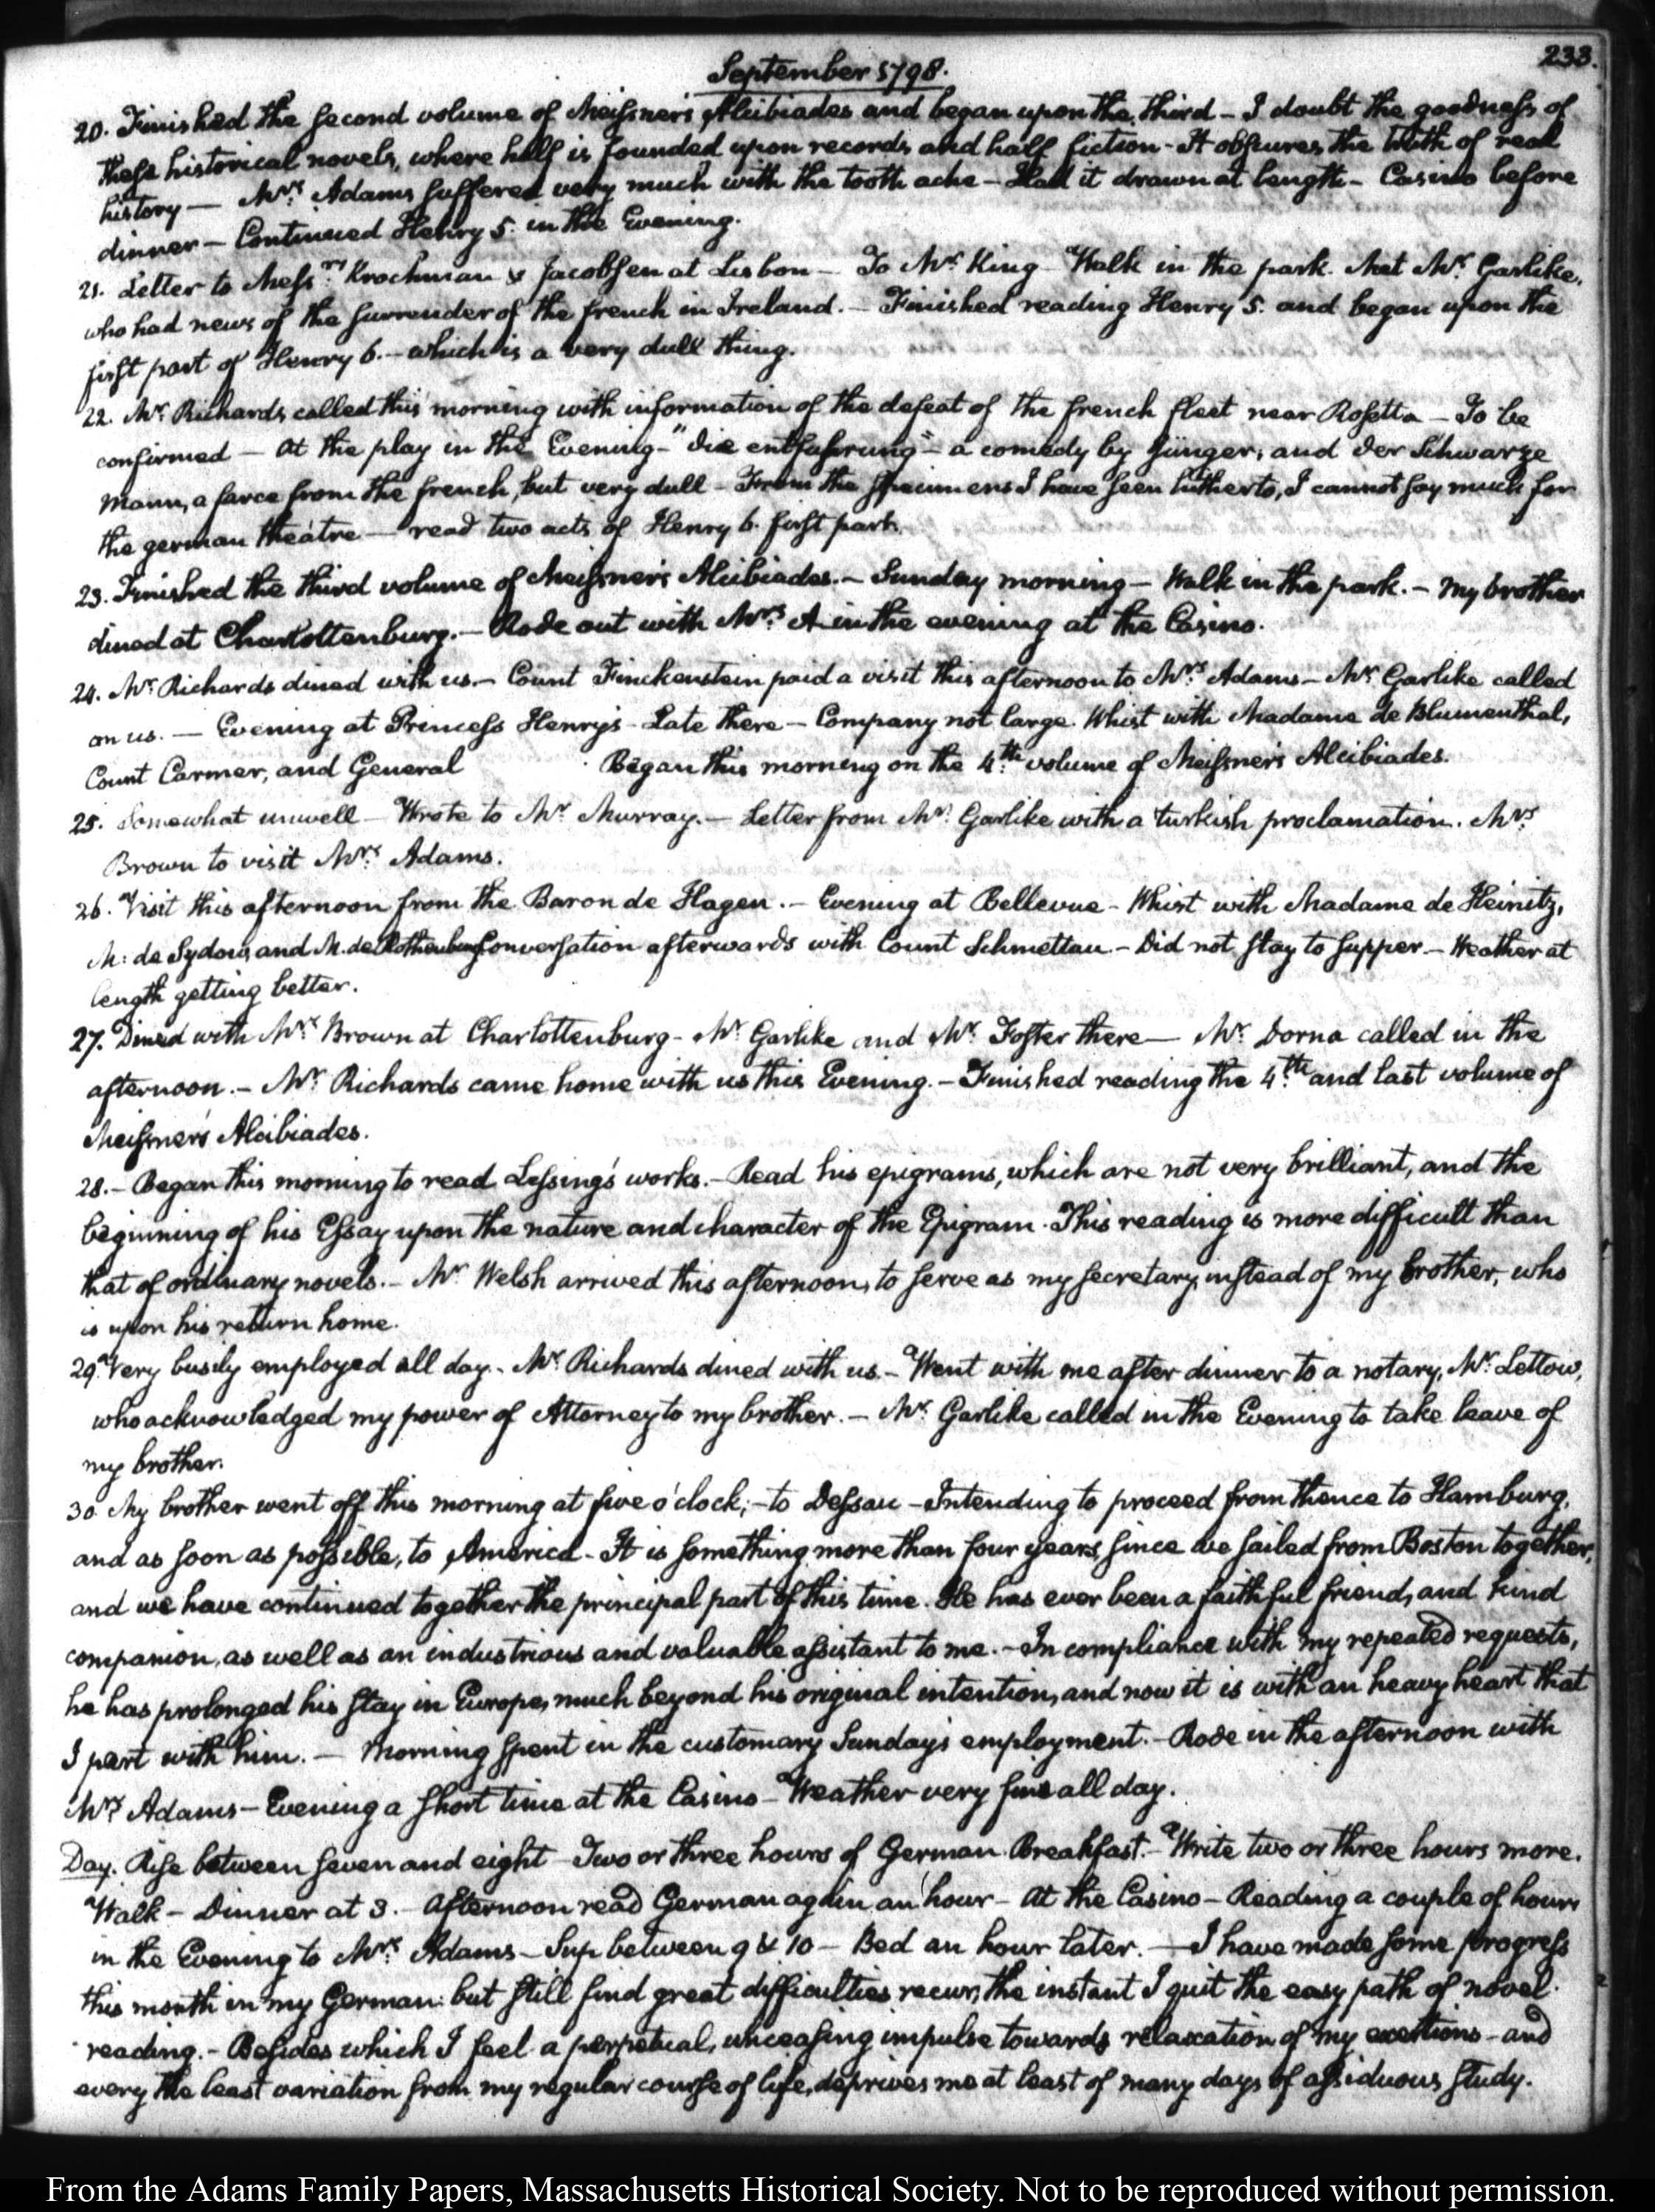 233.
September 1798.
20. Finished the second volume of Meissner's Alcibiades and began upon the third – I doubt the goodness of
these historical novels, where half is founded upon records and half fiction – It obscures the truth of real
history — Mrs: Adams suffered very much with the tooth ache – Had it drawn at length – Casino before
dinner – Continued Henry 5. in the Evening.
21. Letter to Messrs Krochman & Jacobsen at Lisbon – To Mr. King – Walk in the park. Met Mr. Garlike,
who had news of the surrender of the french in Ireland. – Finished reading Henry 5. and began upon the
first part of Henry 6. – which is a very dull thing.
22. Mr. Richards called this morning with information of the defeat of the french fleet near Rosetta – To be
confirmed – At the play in the Evening – "Die entführung" – a comedy by Jünger, and der Schwarze
Mann, a farce from the french, but very dull – From the specimens I have seen hitherto, I cannot say much for
the german theatre — read two acts of Henry 6. first part.
23. Finished the third volume of Meissner's Alcibiades. – Sunday morning – Walk in the park. – My brother
dined at Charlottenburg. – Rode out with Mrs: A in the evening at the Casino.
24. Mr. Richards dined with us. – Count Finckenstein paid a visit this afternoon to Mrs: Adams – Mr. Garlike called
on us. — Evening at Princess Henry's – Late there – Company not large. Whist with Madame de Blumenthal,
Count Carmer, and General Began this morning on the 4th: volume of Meissner's Alcibiades.
25. Somewhat unwell – Wrote to Mr. Murray. – Letter from Mr. Garlike with a turkish proclamation. Mrs:
Brown to visit Mrs: Adams.
26. Visit this afternoon from the Baron de Hagen. – Evening at Bellevue – Whist with Madame de Heinitz,
M: de Sydow, and M. de Rothenburg Conversation afterwards with Count Schmettau. – Did not stay to supper. – Weather at
length getting better.
27. Dined with Mrs: Brown at Charlottenburg – Mr. Garlike and Mr. Foster there — Mr. Dorna called in the
afternoon. – Mr. Richards came home with us this Evening. – Finished reading the 4th: and last volume of
Meissner's Alcibiades.
28. – Began this morning to read Lessing's works. – Read his epigrams, which are not very brilliant, and the
beginning of his Essay upon the nature and character of the Epigram. This reading is more difficult than
that of ordinary novels. – Mr. Welsh arrived this afternoon, to serve as my secretary, instead of my brother, who
is upon his return home.
29. Very busily employed all day. – Mr. Richards dined with us. – Went with me after dinner to a notary, Mr. Lettow,
who acknowledged my power of Attorney to my brother. – Mr. Garlike called in the Evening to take leave of
my brother.
30. My brother went off this morning at five o'clock; – to Dessau – Intending to proceed from thence to Hamburg,
and as soon as possible, to America – It is something more than four years, since we sailed from Boston together,
and we have continued together the principal part of this time. He has ever been a faithful friend, and kind
companion, as well as an industrious and valuable assistant to me. – In compliance with my repeated requests,
he has prolonged his stay in Europe, much beyond his original intention, and now it is with an heavy heart that
I part with him. — Morning spent in the customary Sunday's employment. – Rode in the afternoon with
Mrs: Adams – Evening a short time at the Casino – Weather very fine all day.
Day. Rise between seven and eight – Two or three hours of German. Breakfast. – Write two or three hours more.
Walk – Dinner at 3. – Afternoon read German again an hour – At the Casino – Reading a couple of hours
in the Evening to Mrs: Adams – Sup between 9 & 10 – Bed an hour later. — I have made some progress
this month in my German: but still find great difficulties recur, the instant I quit the easy path of novel
reading. – Besides which I feel a perpetual, unceasing impulse towards relaxation of my exertions – and
every the least variation from my regular course of life, deprives me at least of many days of assiduous study.
From the Adams Family Papers, Massachusetts Historical Society. Not to be reproduced without permission.